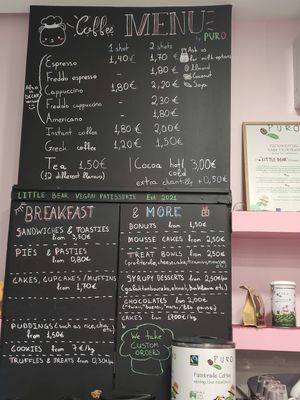 Coffee MENU by PURO
1 shot 2 shots
Espresso 1,40€ 1,70€
Freddo espresso - 1,80€
Cappuccino 1,80€ 2,20€
Freddo cappuccino - 2,30€
Americano - 1,80€
Instant coffee 1,80€ 2,00€
Greek coffee 1,20€ 1,50€
Ask us
for milk options
Almond
Coconut
Soya
Also in
DECAF
Tea 1,50€
(12 different flavours)
Cocoa hot/cold 3,00€
extra chantilly +0,50€
LITTLE BEAR VEGAN PATISSERIE Est. 2021
BREAKFAST
SANDWICHES & TOASTIES
from 3,30€
PIES & PASTIES
from 0,80€
CAKES, CUPCAKES/MUFFINS
from 1,70€
PUDDINGS (such as rice, choc,
from 1,50€
COOKIES from 7€/kg
TRUFFLES & TREATS from 0,30€
& MORE
DONUTS from 1,50€
MOUSSE CAKES from 2,50€
TREAT BOWLS from 2,50€
SYRUPY DESSERTS from 2,50€
CHOCOLATES from 2,00€
CAKES from
We take
CUSTOM
ORDERS
PURO
LITTLE BEAR
PURO
Fairtrade Coffee